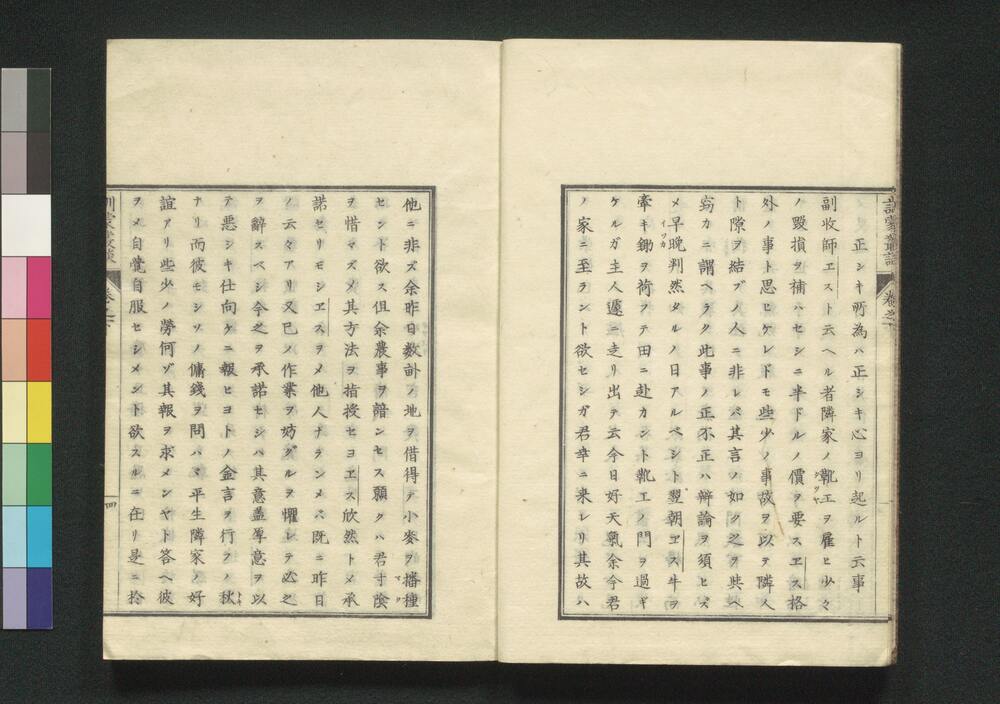 正シキ所為ハ正シキ心ヨリ起ルト云事
副收師ヱスト云ヘル者隣家ノ靴工ヲ雇ヒ少々
ノ毀損ヲ補ハセシニ半ドルノ價ヲ要スヱス格
外ノ事ト思ヒケレドモ些少ノ事故ヲ以テ隣人
ト隙ヲ結ブノ人ニ非レバ其言ノ如ク之ヲ與ヘ
窃カニ謂ヘラク此事ノ正不正ハ辯論ヲ須ヒズ
メ早晩判然タルノ日アルベシト翌朝ヱス牛ヲ
イツカ
牽キ鋤ヲ荷フテ田ニ赴カント靴工ノ門ヲ過ギ
ケルガ主人遽ニ走リ出テ云今日好天氣余今君
ノ家ニ至ラント欲セシガ君幸ニ来レリ其故ハ
他ニ非ズ余昨日数畝ノ地ヲ借得テ小麥ヲ播種
セント欲ス但余農事ヲ諳ンセス願クハ君寸陰
ヲ惜マズメ其方法ヲ指授セヨヱス欣然トメ承
諾セリモシヱスヲメ他人ナランメバ既ニ昨日
ノ云々アリ又已ノ作業ヲ妨グルヲ懼レテ必之
ヲ辭スベシ今之ヲ承諾セシハ其意蓋厚意ヲ以
テ悪シキ仕向ケニ報ヒヨトノ金言ヲ行フノ秋
ナリ而彼モシソノ傭錢ヲ問ハヾ平生隣家ノ好
誼アリ些少ノ勞何ゾ其報ヲ求メンヤト答ヘ彼
ヲメ自覺自服セシメント欲スルニ在リ是ニ於
卷之下
四